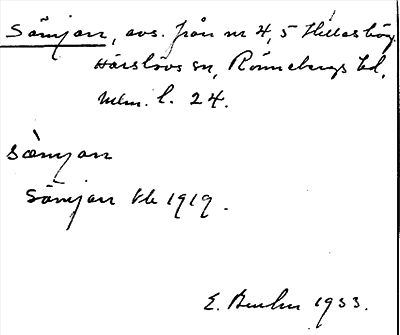 Sämjan, avs. från nr 4, 5 Hilleshög,
Härslövs sn, Rönnebergs hd,
Mlm. l. 24.
sämjan
Sämjan kb 1919.
E. 1933.